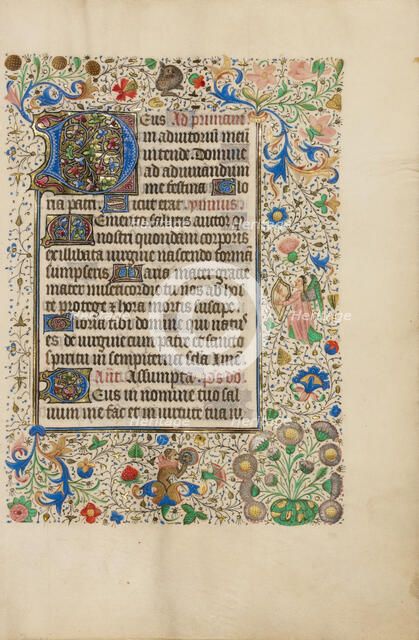 Deus Ad primam
in adiutorium meu
intende. Domine
ad adiuuandum
me festina Glo
ria patri Sicut erat ymnus
Memento salutis auctor q
nostri quondam corporis
ex illibata uirgine nascendo formā
sumpseris Maria mater gratie
mater misericordie tu nos ab hos
te protege et hora mortis suscipe
Gloria tibi domine qui natus
es de uirgine cum patre et sancto
spiritu in sempiterna secula Amē
Ant Assumpta ps dō
Deus in nomine tuo sal
uum me fac et in uirtute tua iu
Heritage
Heritage